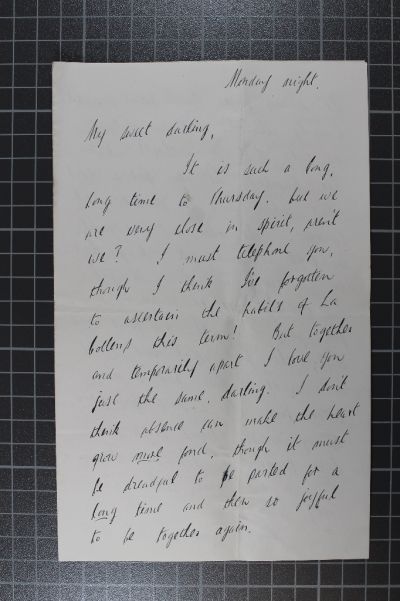 Monday night.
My sweet darling,
It is such a long,
long time to Thursday. but we
are very close in spirit, aren't
we? I must telephone you,
though I think I've forgotten
to ascertain the habits of La
this term! But together
and temporarily apart I love you
just the same, darling. I don't
think absence can make the heart
grow more fond, though it must
be dreadful to be parted for a
long time and then so joyful
to be together again.